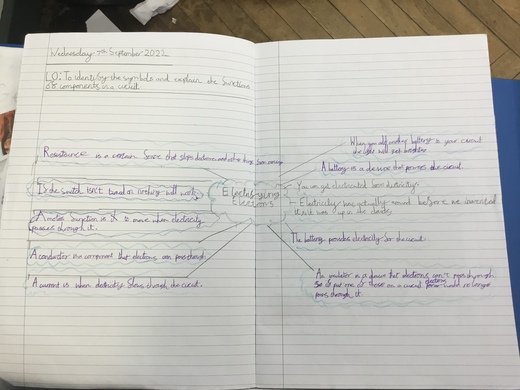 Wednesday 7th September 2022
LO: To identify the symbols and explain the functions
of components in a circuit.
Resistance is a certain force that stops electrons and other things from
If the switch isn't turned on nothing will work.
A motor function is to move when electricity
passes through it.
A conductor is a component that electrons can pass through.
A current is when electricity flows through the circuit.
Electrifying
Electrons
When you add another battery to your circuit
the light will get brighter
A battery is a device that powers the circuit.
- You can get electrocuted from electricity.
- Electricity was actually found before we invented
it it was up in the clouds.
The battery provides electricity for the circuit.
An insulator is a device that electrons can't pass through.
So if put one of those on a circuit electrons would no longer
pass through it.